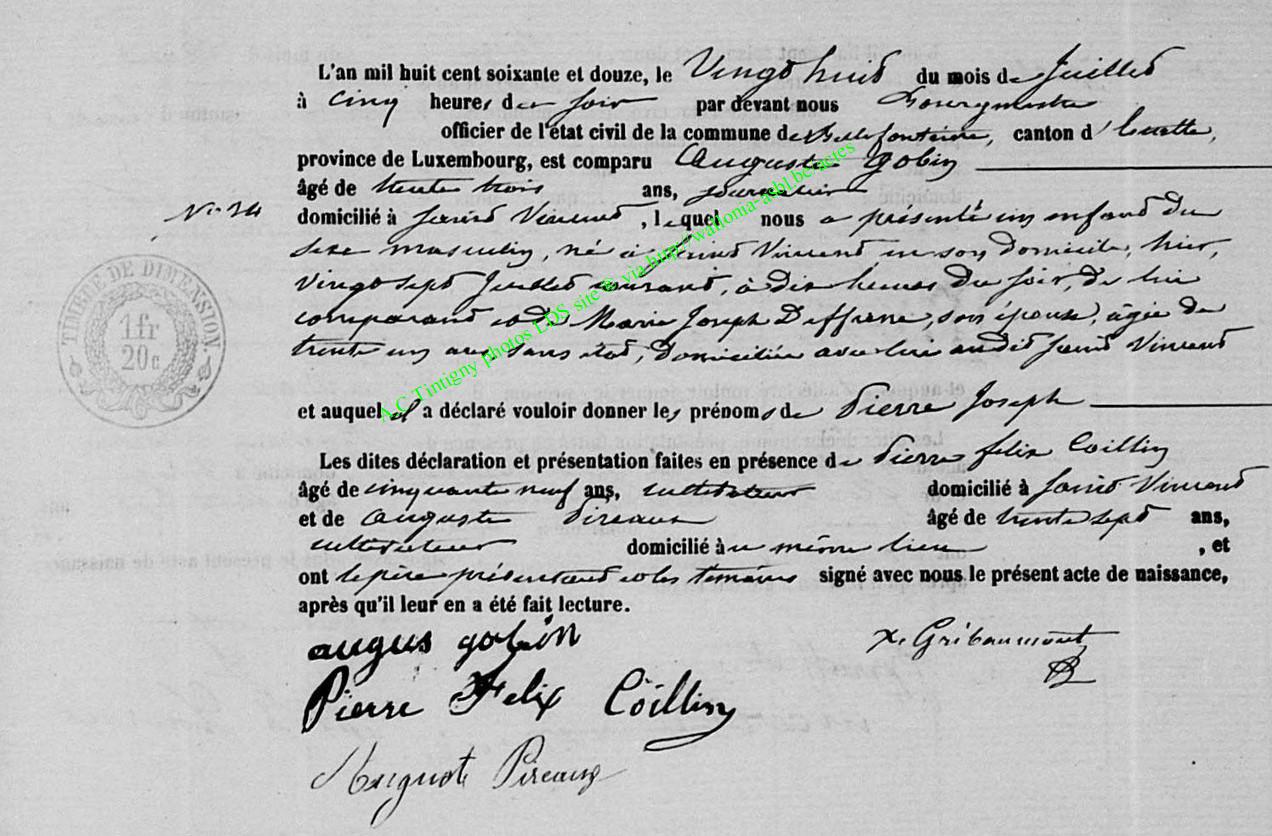 L'an mil huit cent soixante et douze, le Vingt huit du mois de Juillet
à Cinq heures du soir par devant nous Bourgmestre
officier de l'état civil de la commune de Bellefontaine, canton d'
province de Luxembourg, est comparu Auguste Gobin
âgé de trente trois ans, journalier
N° 34
domicilié à Saint Vincent, lequel nous a présenté un enfant du
sexe masculin, né à Saint Vincent en son domicile, hier,
Vingt sept Juillet courant, à dix heures du soir, de lui
comparant et de Marie Joseph Deffrene, son épouse, âgée de
trente un ans sans état, domiciliée avec lui audit Saint Vincent
et auquel il a déclaré vouloir donner les prénoms de Pierre Joseph
Les dites déclaration et présentation faites en présence de Pierre felix Coillin
âgé de cinquante neuf ans, cultivateur domicilié à Saint Vincent
et de Auguste Pireaux âgé de trente sept ans,
cultivateur domicilié à même lieu , et
ont le père présentant et les témoins signé avec nous le présent acte de naissance,
après qu'il leur en a été fait lecture.
augus gobin
x. Gribaumont
Pierre Felix Coillin
Auguste Pireaux
TIMBRE DE DIMENSION.
1 fr
20 c
A.C Tintigny photos LDS site @ via http://wallonia-asbl.be/actes